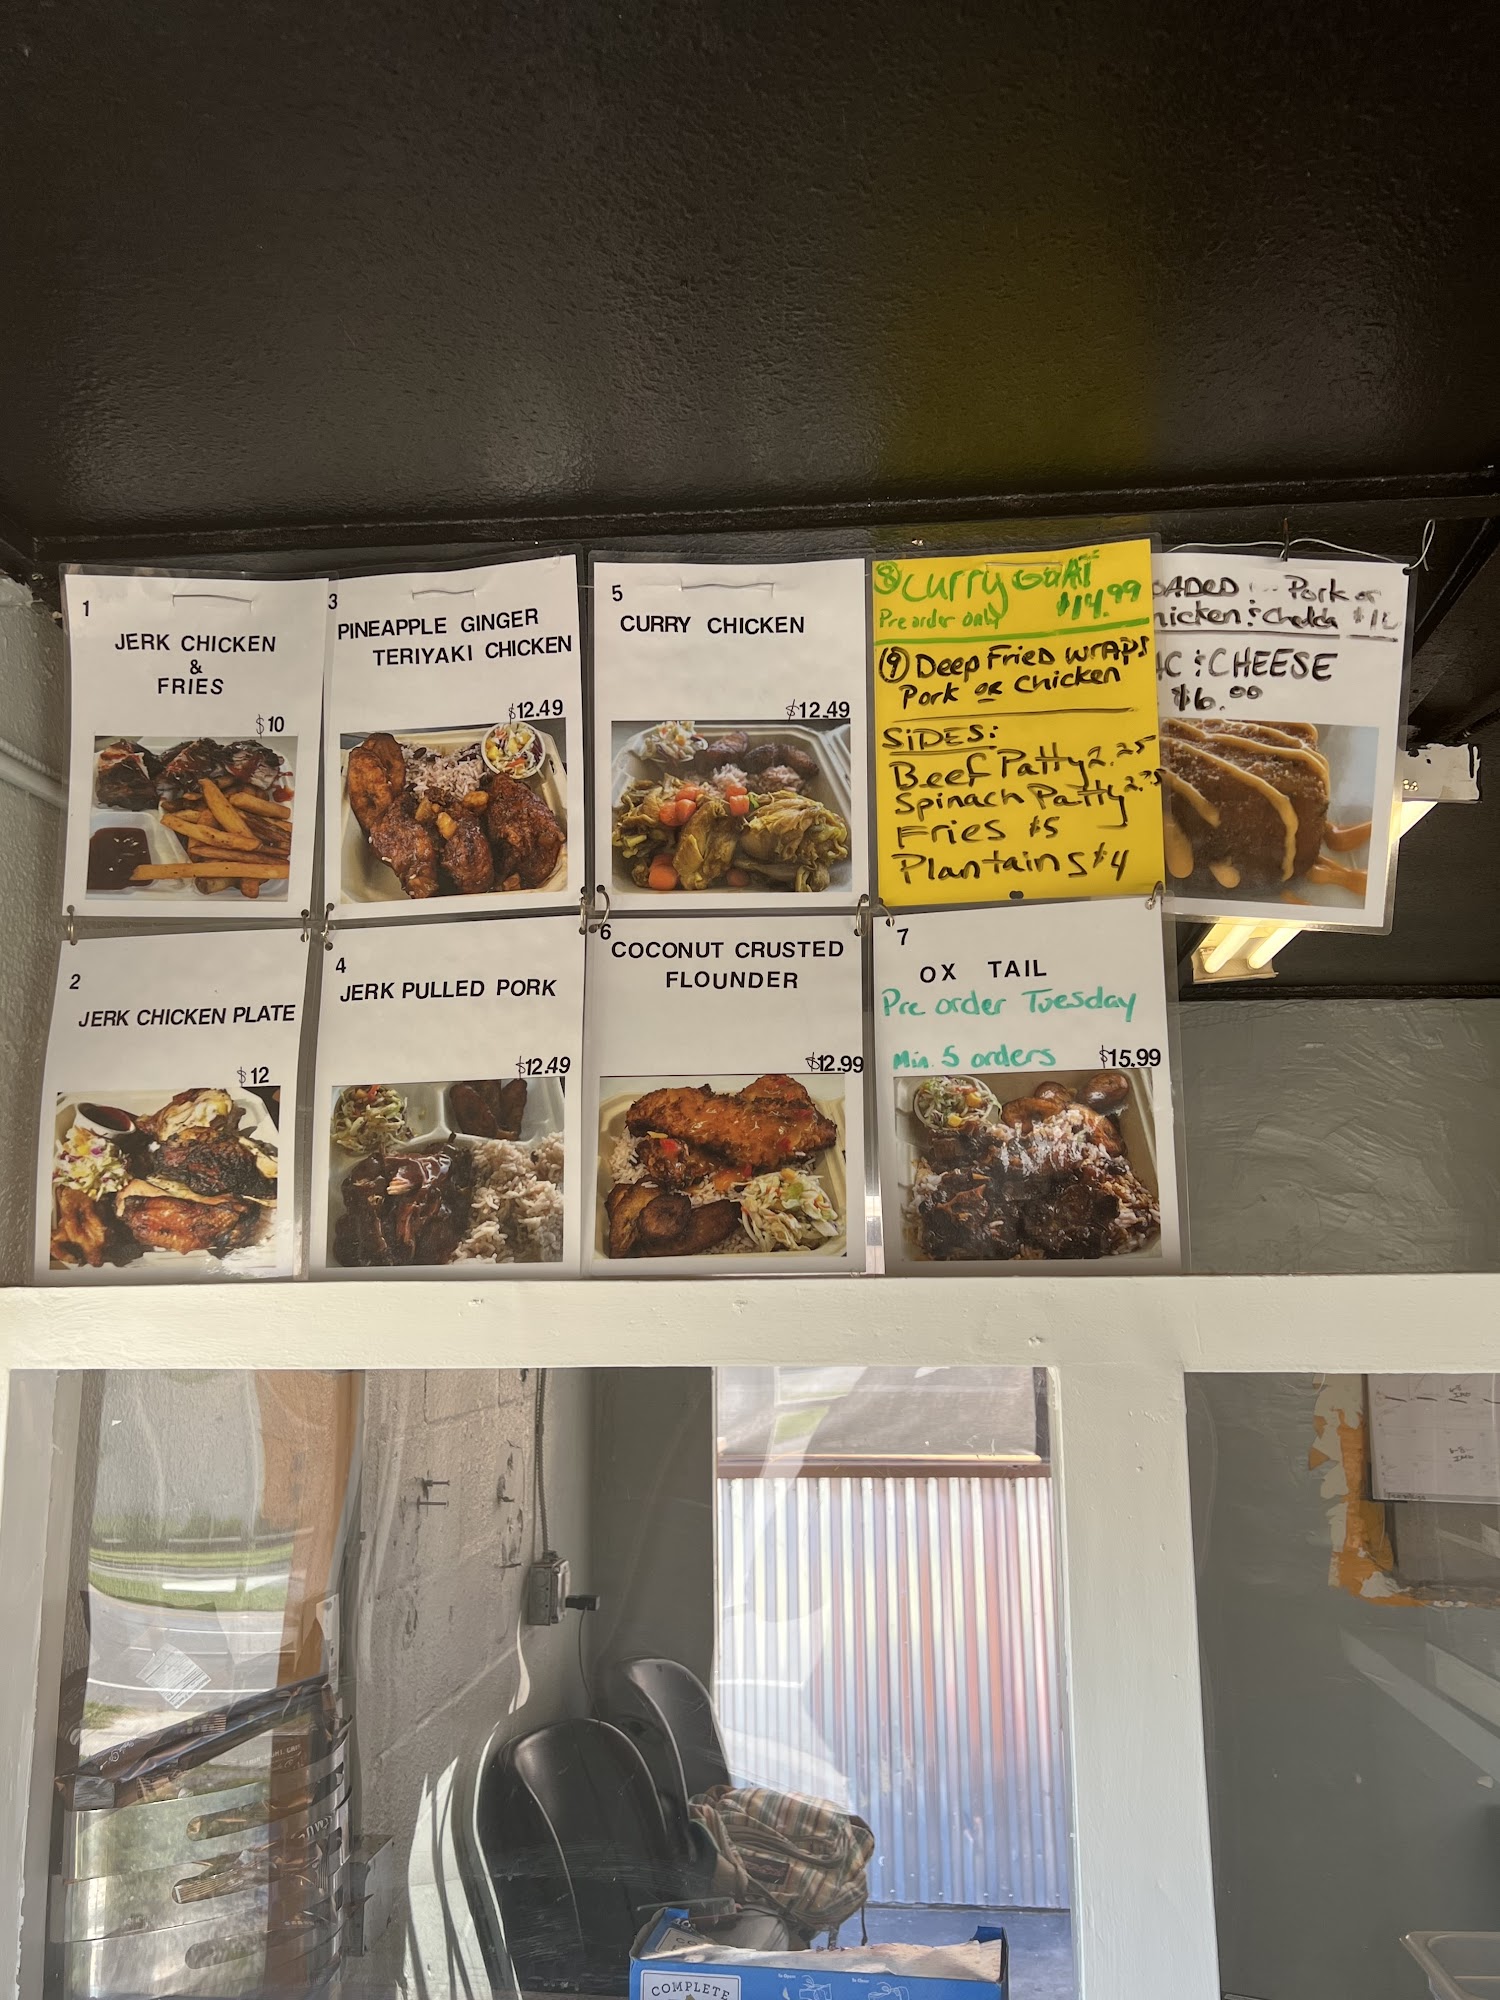 1
JERK CHICKEN
&
FRIES
$10
3
PINEAPPLE GINGER
TERIYAKI CHICKEN
$12.49
5
CURRY CHICKEN
$12.49
8 Curry GOAT
Pre order only $14.99
9 Deep FRIED WRAPS
Pork or Chicken
SIDES:
Beef Patty 2.25
Spinach Patty
Fries $5
Plantains $4
OADED Pork or
hicken & Chedda
AC & CHEESE
$6.00
2
JERK CHICKEN PLATE
$12
4
JERK PULLED PORK
$12.49
6
COCONUT CRUSTED
FLOUNDER
$12.99
7
OX TAIL
Pre order Tuesday
Min. 5 orders $15.99
COMPLETE